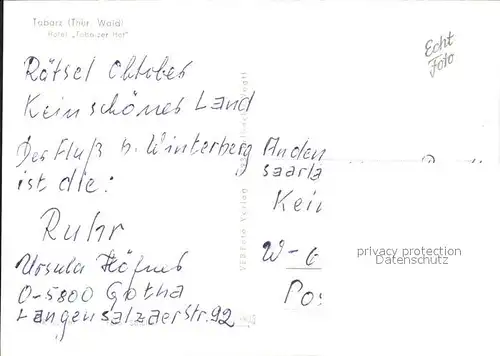 Tabarz (Thür. Wald)
Hotel „Tabarzer Hof"
Echt
Foto
Rätsel Oktober
Kein schönes Land
Der Fluß b. Winterberg
ist die:
Ruhr
Ursula
O-5800 Gotha
Langensalzaerstr. 92
VEB Foto-Verlag
An den
Saarla
Kein
W-6
Pos
privacy protection
Datenschutz